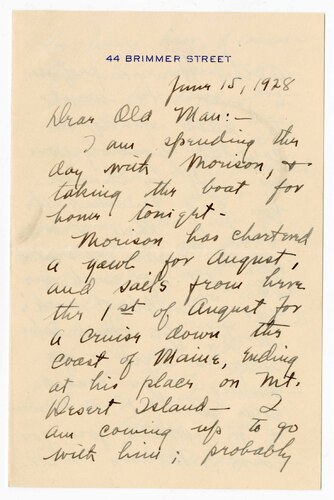 44 BRIMMER STREET
June 15, 1928
Dear Old Man:-
I am spending the
day with Morison, &
taking the boat for
home tonight-
Morison has chartered
a yawl for August,
and sails from here
the 1st of August for
a cruise down the
coast of Maine, ending
at his place on Mt.
Desert Island- I
am coming up to go
with him; probably